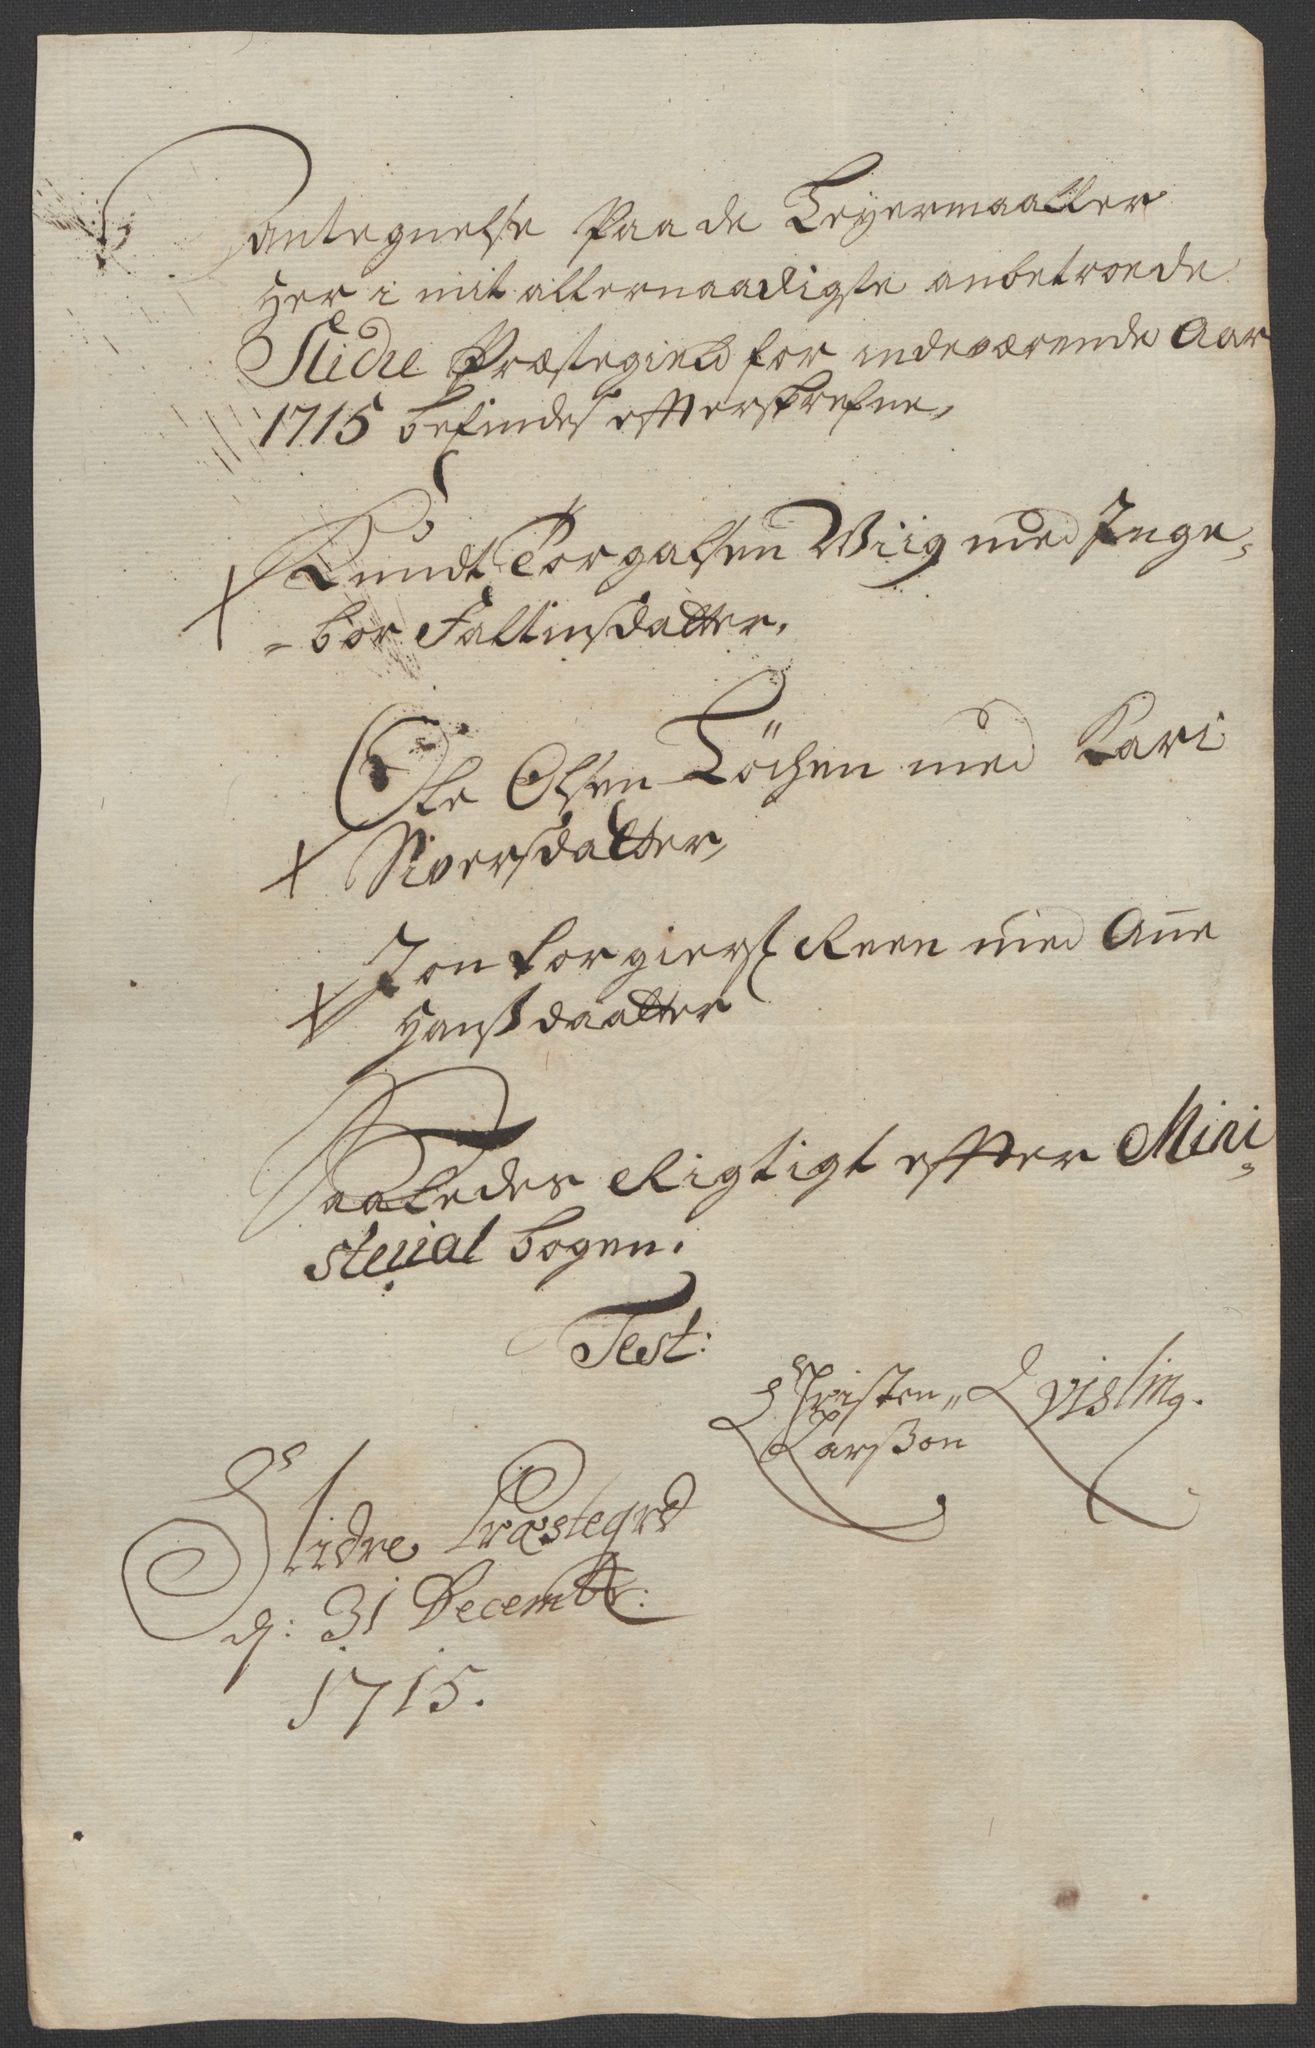 Antegnelse Paa de Leyermaaller
Her i mit allernaadigste anbetroede
Slidre Præstegield for indeværende Aar
1715 befindes effterskrefne,
Knudt Torgalsen Wiig med Inge„
„bor Faltinsdatter,
Ole Olsen Löchen med Kari
Siversdatter,
Jon Torgiers: Reen med Añe
Hanßdaatter
Saaledes Rigtigt effter Mini„
sterial bogen.
Test:
Christen„ Qvisling.
Larßon
Slidre Præstegrd
d: 31 Decembr:
1715.